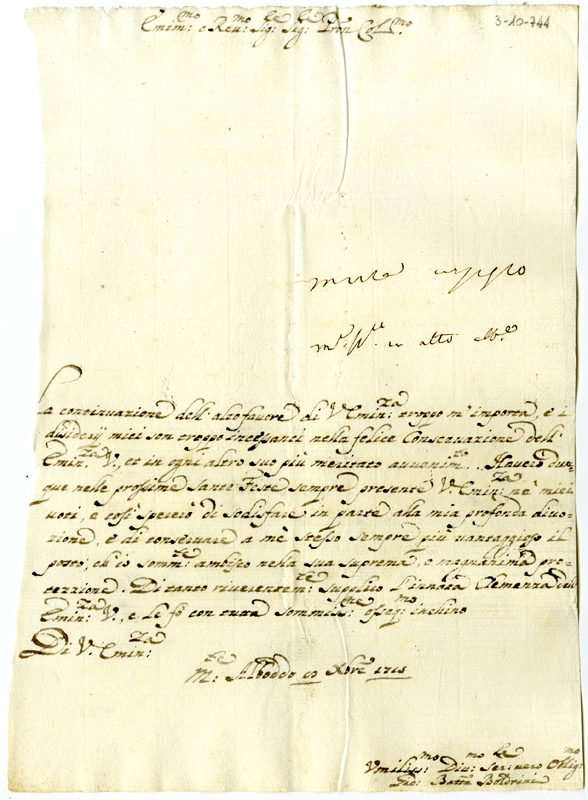 3-10-744
Emin:mo e Reu:mo Sig:re Sig:re Pron Col:mo
in atto
La continuazione dell' alto favore di V. Emin:za troppo m' importa, e i
disiderij miei son troppo incessanti nella felice Conservazione dell'
Emin:za V., et in ogni altro suo più meritato avvenim:to. Haverò dun-
que nelle prossime Sante Feste sempre presente V. Emin:za ne' miei
voti, e così spererò di sodisfare in parte alla mia profonda divo-
zione, e di conservare a me stesso sempre più vantaggioso il
posto, ch' io somm:te ambisco nella sua suprema, e magnanima pro-
tezzione. Di tanto riverentem:te supplico l'innata Clemenza dell'
Emin:za V., e le fò con tutta sommiss:ne osseq:mo inchino
Di V. Emin:za
M:te Alboddo Xbre 1715
Vmiliss:mo Diu:mo Ser:le vero Oblig:mo
Gio: Batta Boldrini